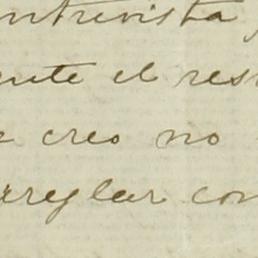 ntrevista
nte el res
e creo no
rreglar con